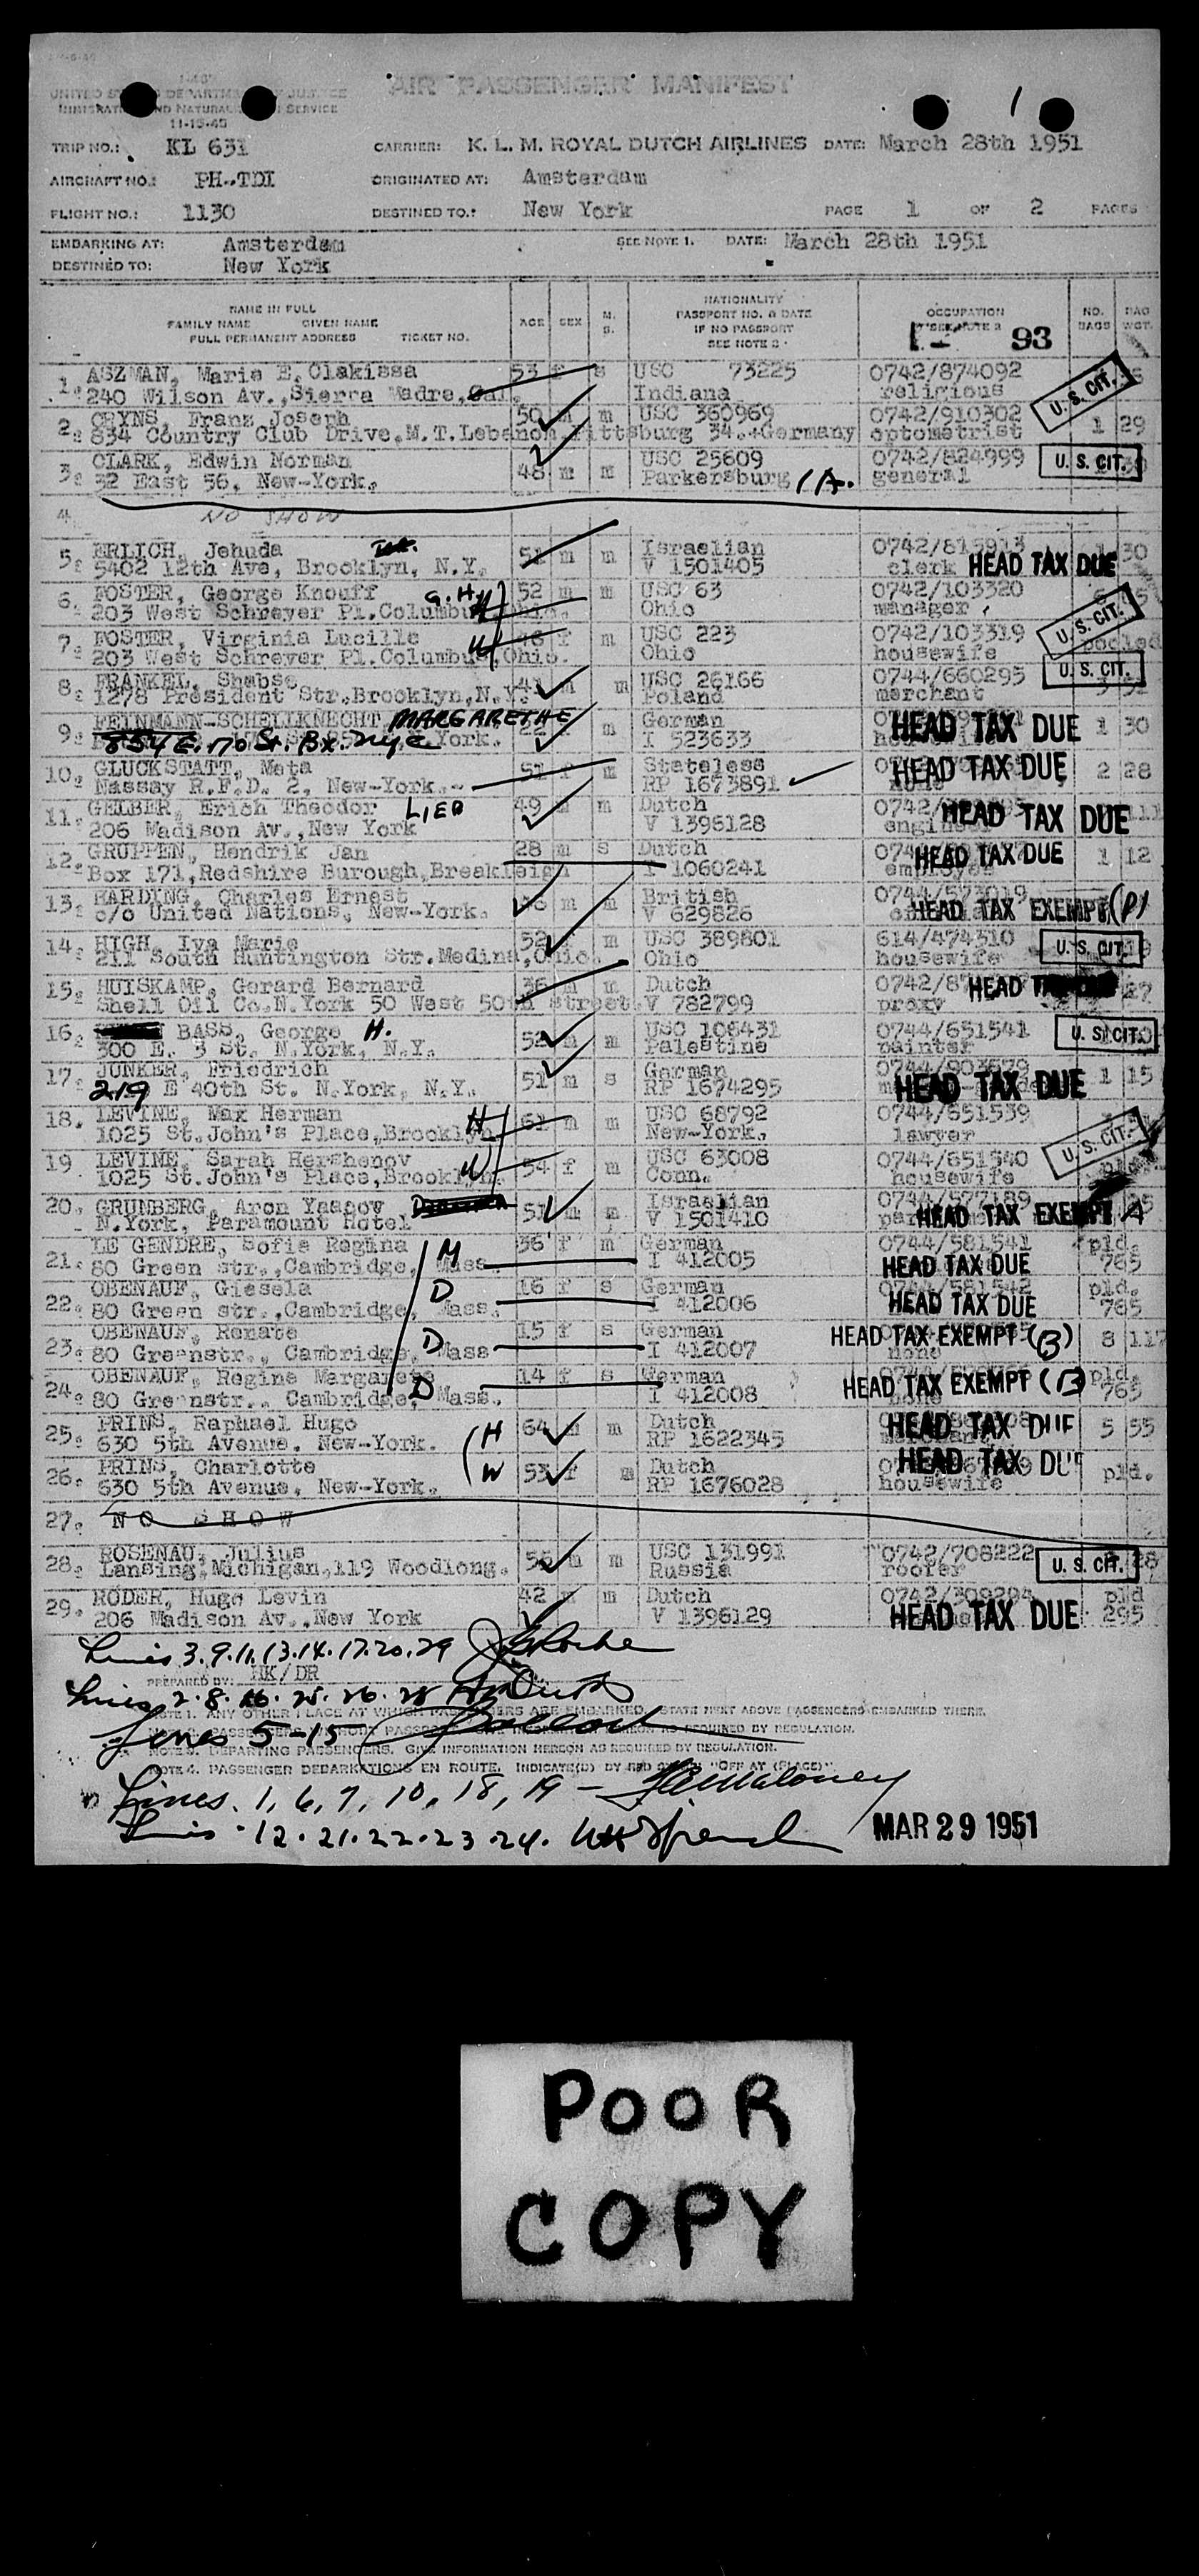 AIR PASSENGER MANIFEST
UNITED STATES DEPARTMENT OF JUSTICE
IMMIGRATION AND NATURALIZATION SERVICE
11-15-45
TRIP NO.: KL 631 CARRIER: K. L. M. ROYAL DUTCH AIRLINES DATE: March 28th 1951
AIRCRAFT NO.: PH-TDI ORIGINATED AT: Amsterdam
FLIGHT NO.: 1130 DESTINED TO: New York PAGE 1 OF 2 PAGES
EMBARKING AT: Amsterdam SEE NOTE 1. DATE: March 28th 1951
DESTINED TO: New York
NAME IN FULL
FAMILY NAME GIVEN NAME
FULL PERMANENT ADDRESS TICKET NO.
AGE SEX M. S.
NATIONALITY
PASSPORT NO. & DATE
IF NO PASSPORT
SEE NOTE 2
OCCUPATION
SEE NOTE 2
93
NO. BAGS BAG WGT.
1. ASZMAN, Marie E. Clakissa 53 f s USC 73225 0742/874092
240 Wilson Av., Sierra Madre, Cal. Indiana religious U. S. CIT.
2. CRYNS, Franz Joseph 50 m m USC 360969 0742/910302
834 Country Club Drive.M.T.Lebanon Pittsburg 34. Germany optometrist 1 29
3. CLARK, Edwin Norman 48 m m USC 25609 0742/824999
32 East 56, New-York. Parkersburg general U. S. CIT.
4. NO SHOW
5. ERLICH, Jehuda 51 m m Israelian
5402 12th Ave, Brooklyn, N.Y. V 1501405 clerk HEAD TAX DUE 30
6. FOSTER, George Knouff G.H. H 52 m m USC 63 0742/103320
203 West Schreyer Pl.Columbus, Ohio. Ohio manager U. S. CIT.
7. FOSTER, Virginia Lucille W f m USC 223 0742/103319
203 West Schreyer Pl.Columbus, Ohio. Ohio housewife pooled
8. FRANKEL, Shabse 41 m m USC 26166 0744/660295
1278 President Str.,Brooklyn,N.Y. Poland merchant U. S. CIT.
9. FEINMANN-SCHELLKNECHT MARGARETHE 22 m German HEAD TAX DUE 1 30
854 E. 170 St. Bx. NYC York. I 523633
10. GLUCKSTATT, Meta 51 f m Stateless HEAD TAX DUE 2 28
Nassay R.F.D. 2, New-York. RP 1673891
11. GELBER, Erich Theodor 49 m Dutch 0742/
206 Madison Av.,New York V 1396128 HEAD TAX DUE
12. GRUPPEN, Hendrik Jan 28 m s Dutch HEAD TAX DUE 1 12
Box 171,Redshire Burough,Breakleigh I 1060241
13. HARDING, Charles Ernest m m British 0744/573019
c/o United Nations, New-York. V 629826 HEAD TAX EXEMPT
14. HIGH, Iva Marie 52 f m USC 389801 614/474310
211 South Huntington Str.Medina,Ohio. Ohio housewife U. S. CIT.
15. HUISKAMP, Gerard Bernard 36 m m Dutch
Shell Oil Co.N.York 50 West 50th Street. V 782799 proxy HEAD 27
16. BASS, George H. 52 m m USC 106431 0744/651541
300 E. 3 St. N.York, N.Y. Palestine painter U. S. CIT.
17. JUNKER, Friedrich 51 m s German HEAD TAX DUE 1 15
219 E 40th St. N.York, N.Y. RP 1674295
18. LEVINE, Max Herman H 61 m m USC 68792 0744/651539
1025 St.John's Place,Brooklyn New-York. lawyer U. S. CIT.
19. LEVINE, Sarah Hershenov W 54 f m USC 63008 0744/651540
1025 St.John's Place,Brooklyn. Conn. housewife
20. GRUNBERG, Aron Yaacov 51 m m Israelian 0744/577189
N.York, Paramount Hotel V 1501410 HEAD TAX EXEMPT A
21. LE GENDRE, Sofie Regina M 36 f m German 0744/581541 pld.
80 Green str.,Cambridge, Mass. I 412005 HEAD TAX DUE 765
22. OBENAUF, Giesela D 16 f s German 0744/581542 pld.
80 Green str.,Cambridge, Mass. I 412006 HEAD TAX DUE 765
23. OBENAUF, Renate D 15 f s German HEAD TAX EXEMPT (B) 8 117
80 Greenstr., Cambridge, Mass I 412007 none
24. OBENAUF, Regine Margarete D 14 f s German HEAD TAX EXEMPT (B) pld.
80 Greenstr., Cambridge, Mass. I 412008 none 765
25. PRINS, Raphael Hugo H 64 m m Dutch HEAD TAX DUE 5 55
630 5th Avenue. New-York. RP 1622345
26. PRINS, Charlotte W 53 f m Dutch HEAD TAX DUE pld.
630 5th Avenue, New-York. RP 1676028 housewife
27. NO SHOW
28. ROSENAU, Julius m m USC 131991 0742/708222
Lansing,Michigan,119 Woodlong. Russia roofer U. S. CIT. 28
29. RODER, Hugo Levin 42 m m Dutch 0742/309294 pld
206 Madison Av.,New York V 1396129 HEAD TAX DUE 295
Lines 3.9.11.13.14.17.20.29
PREPARED BY: HK/DR
Lines 2.8.16.25.26.28
NOTE 1. ANY OTHER PLACE AT WHICH PASSENGERS ARE EMBARKED, STATE NEXT ABOVE PASSENGERS EMBARKED THERE.
Lines 5-15
REQUIRED BY REGULATION.
NOTE 3. DEPARTING PASSENGERS. GIVE INFORMATION HEREON AS REQUIRED BY REGULATION.
NOTE 4. PASSENGER DEBARKATIONS EN ROUTE. INDICATE(D) BY RED "OFF AT (PLACE)".
Lines 1, 6, 7, 10, 18, 19 - Maloney
Lines 12.21.22.23.24.
MAR 29 1951
POOR
COPY